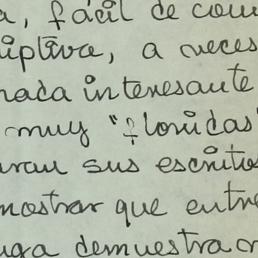 a, fácil de com
iptiva, a veces
nada interesante
muy "floridas"
aran sus escrito
mostrar que entre
uga demuestra cr